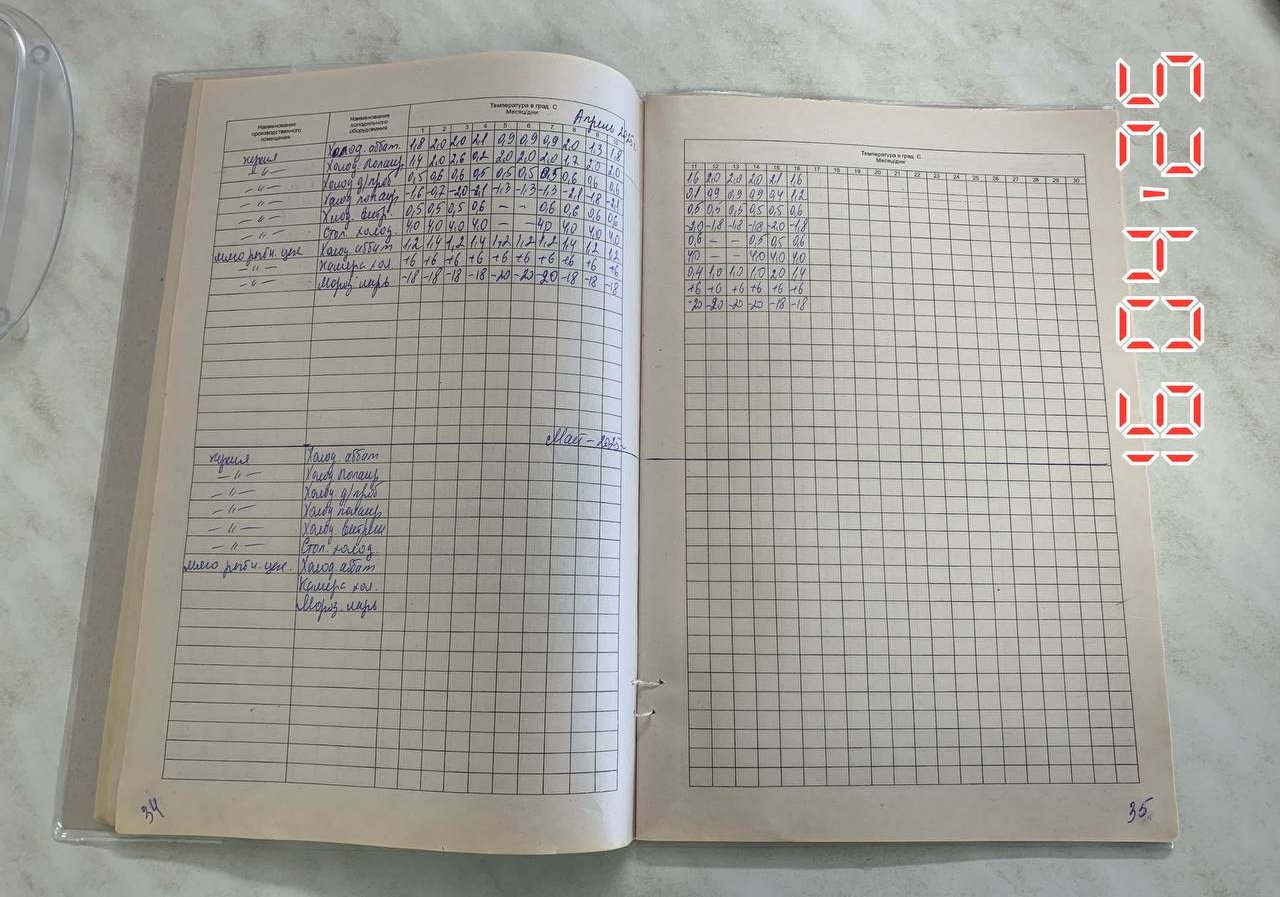 Наименование производственного помещения
Наименование холодильного оборудования
Температура в град. С
Месяц/дни
Апрель 2025г.
1 2 3 4 5 6 7 8 9
кухня Холод. аббат. 1,8 2,0 2,0 2,1 0,9 0,9 0,9 2,0 1,3 1,8
-"- Холод. 1,4 2,0 2,6 0,2 2,0 2,0 2,0 1,7 2,0 2,0
-"- Холод д/проб 0,5 0,6 0,6 0,5 0,5 0,5 0,5 0,6 0,6 0,6
-"- Холод -1,6 -0,7 -2,0 -2,1 -1,3 -1,3 -1,3 -2,1 -1,8 -2,1
-"- Холод. витр. 0,5 0,5 0,5 0,6 – – 0,6 0,6 0,6 0,6
-"- Стол. холод. 4,0 4,0 4,0 4,0 – – 4,0 4,0 4,0 4,0
мясо рыбн. цех Холод. аббат 1,2 1,4 1,2 1,4 1,2 1,2 1,2 1,4 1,2 1,2
-"- Камера хол. +6 +6 +6 +6 +6 +6 +6 +6 +6 +6
-"- Мороз ларь -18 -18 -18 -18 -20 -20 -20 -18 -18 -18
Май – 2025г
кухня Холод. аббат
-"- Холод
-"- Холод. д/проб
-"- Холод
-"- Холод. витрин
-"- Стол. холод.
мясо рыбн. цех. Холод. аббат
Камера хол.
Мороз. ларь
34
Температура в град. С
Месяц/дни
11 12 13 14 15 16 17 18 19 20 21 22 23 24 25 26 27 28 29 30
1,6 2,0 2,0 2,0 2,1 1,6
0,1 0,9 0,9 0,9 0,4 1,2
0,5 0,5 0,5 0,5 0,5 0,6
-2,0 -1,8 -1,8 -1,8 -2,0 -1,8
0,6 – – 0,5 0,5 0,6
4,0 – – 4,0 4,0 4,0
0,4 1,0 1,0 1,0 2,0 1,4
+6 +6 +6 +6 +6 +6
-20 -20 -20 -20 -18 -18
35
16 04 '25